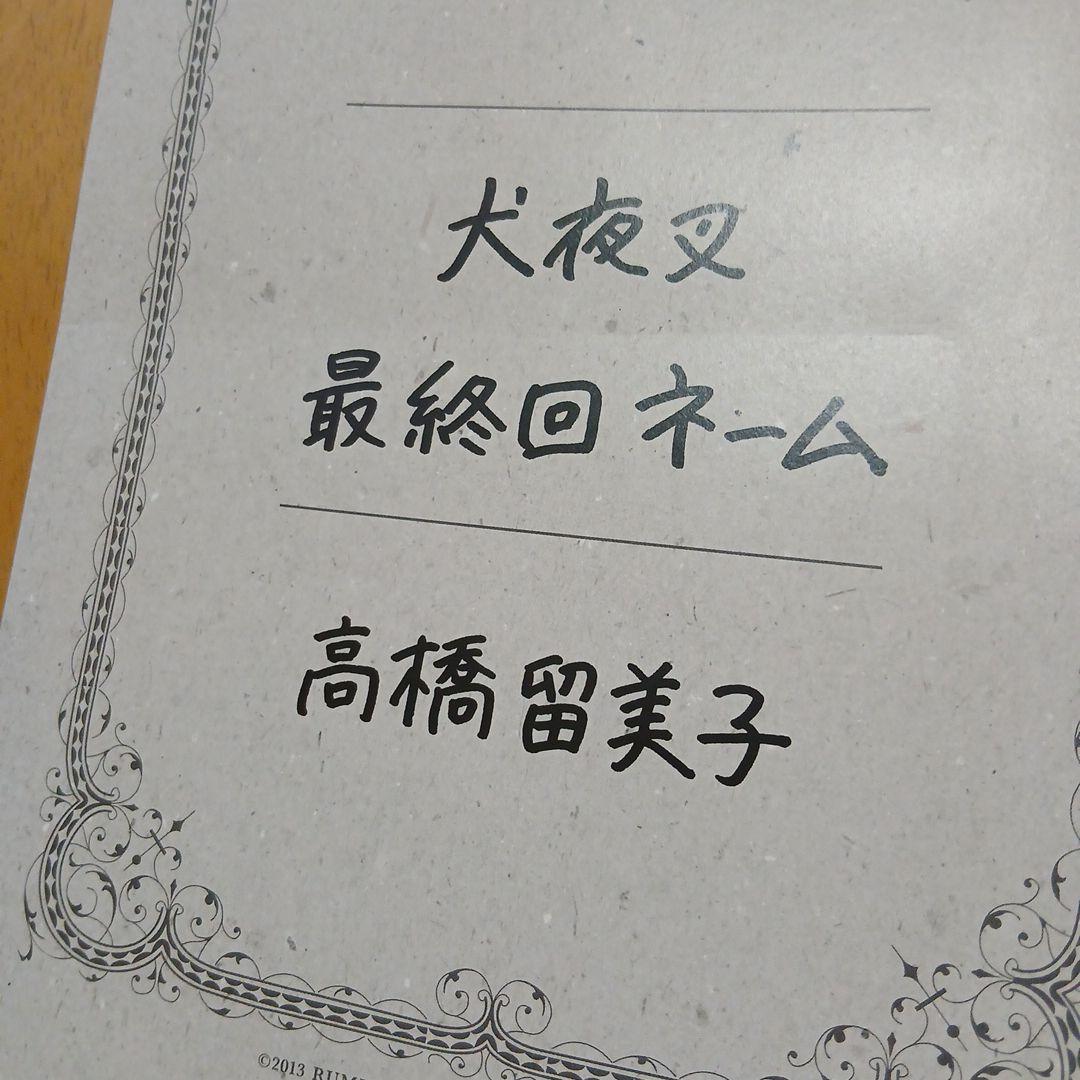 犬夜叉
最終回ネーム
高橋留美子
©2013